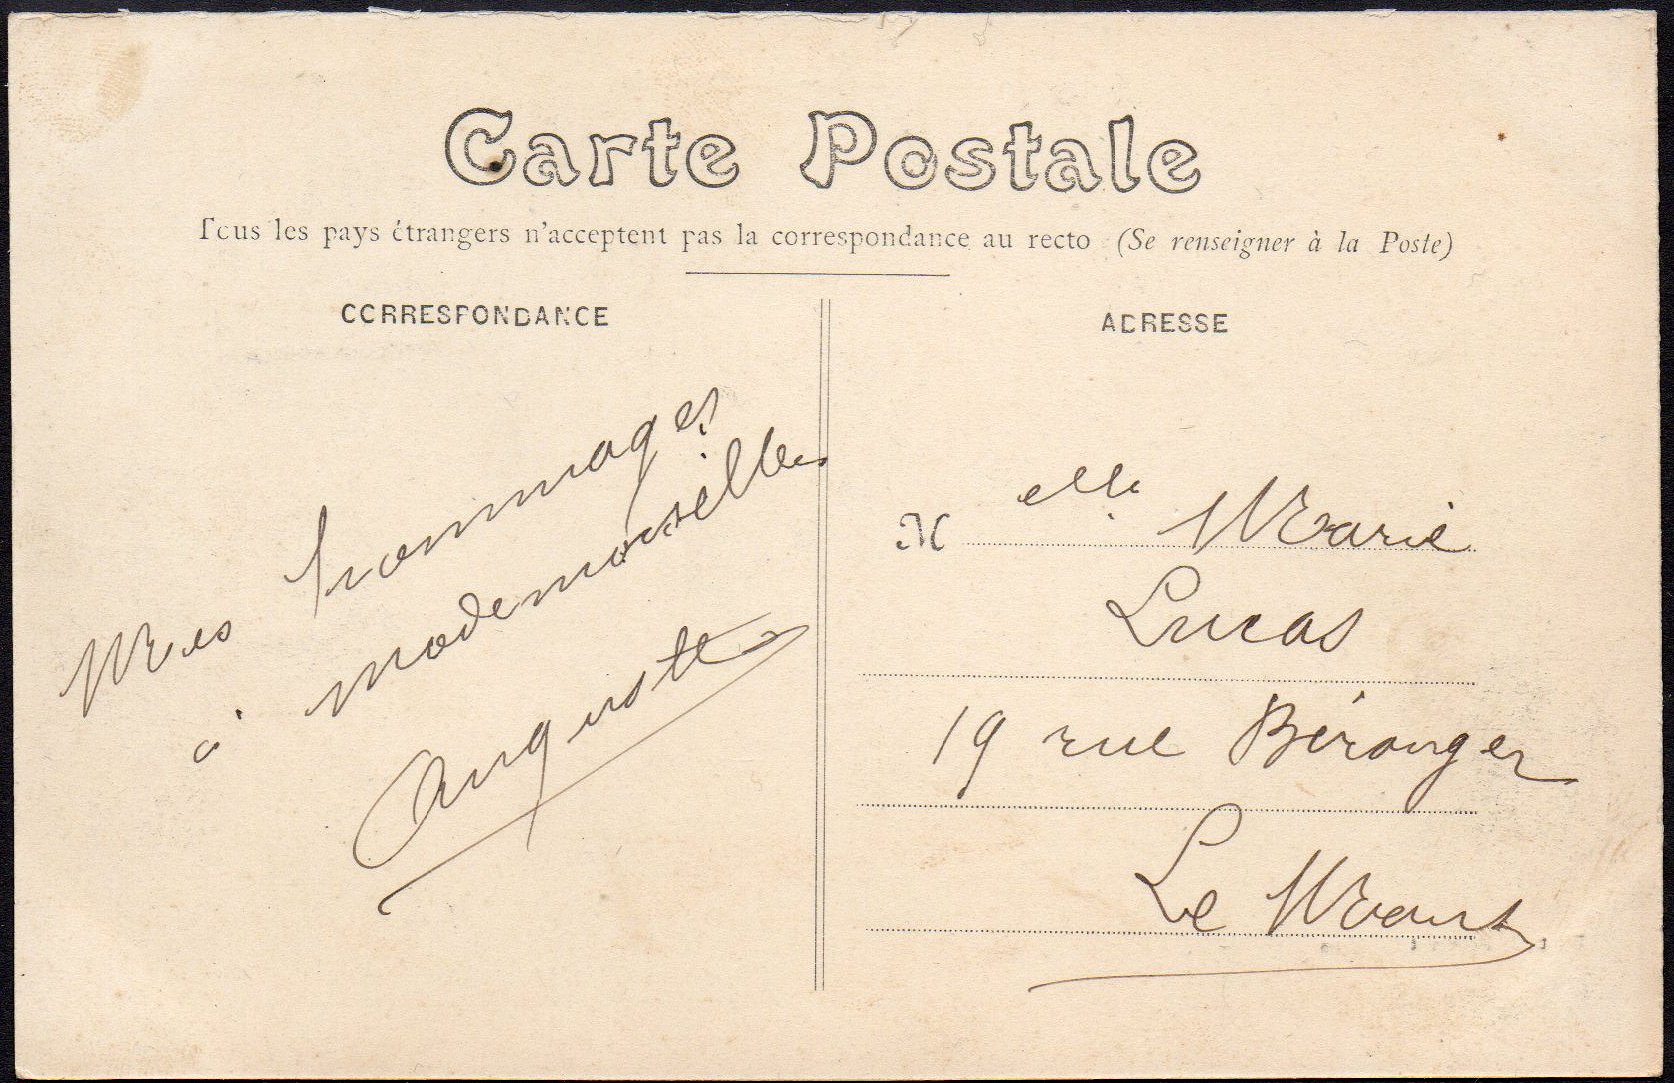 Carte Postale
Tous les pays étrangers n'acceptent pas la correspondance au recto (Se renseigner à la Poste)
CORRESPONDANCE
ADRESSE
Mes hommages
à mademoiselle
Auguste
M elle Marie
Lucas
19 rue Béranger
Le Mans